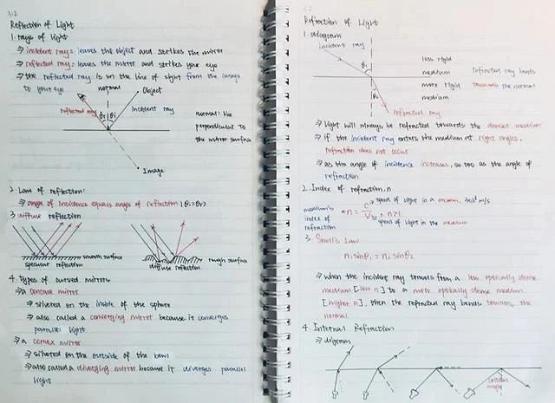 Reflection of Light
1. rays of light
⇒ incident ray: leaves the object and strikes the mirror
⇒ reflected ray: leaves the mirror and strikes your eye
⇒ the reflected ray is on the line of sight from the image
to your eye
normal
Object
reflected ray
θr θi
Incident ray
normal: line
perpendicular to
the mirror surface
Image
2. Law of reflection:
⇒ angle of incidence equals angle of reflection
3. diffuse reflection
smooth surface
specular reflection
rough surface
diffuse reflection
4. types of curved mirrors
⇒ a concave mirror
⇒ silvered on the inside of the sphere
⇒ also called a converging mirror because it converges
parallel light
⇒ a convex mirror
⇒ silvered on the outside of the
⇒ also called a diverging mirror because it diverges parallel
light
Refraction of Light
1. diagram
incident ray
less rigid
medium
more rigid
medium
refracted ray bends
towards the normal
refracted ray
⇒ light will always be refracted towards the denser medium
⇒ if the incident ray enters the medium at right angles,
refraction does not occur
⇒ as the angle of incidence increases, so too as the angle of
refraction
2. Index of refraction, n
medium's
index of
refraction
speed of light in a vacuum
n = c/v
n>1
speed of light in the medium
3. Snell's Law
n₁sinθ₁ = n₂sinθ₂
⇒ when the incident ray travels from a less optically dense
medium [low n] to a more optically dense medium
[higher n], then the refracted ray bends towards the
normal
4. Internal Refraction
⇒ diagram
critical
angle